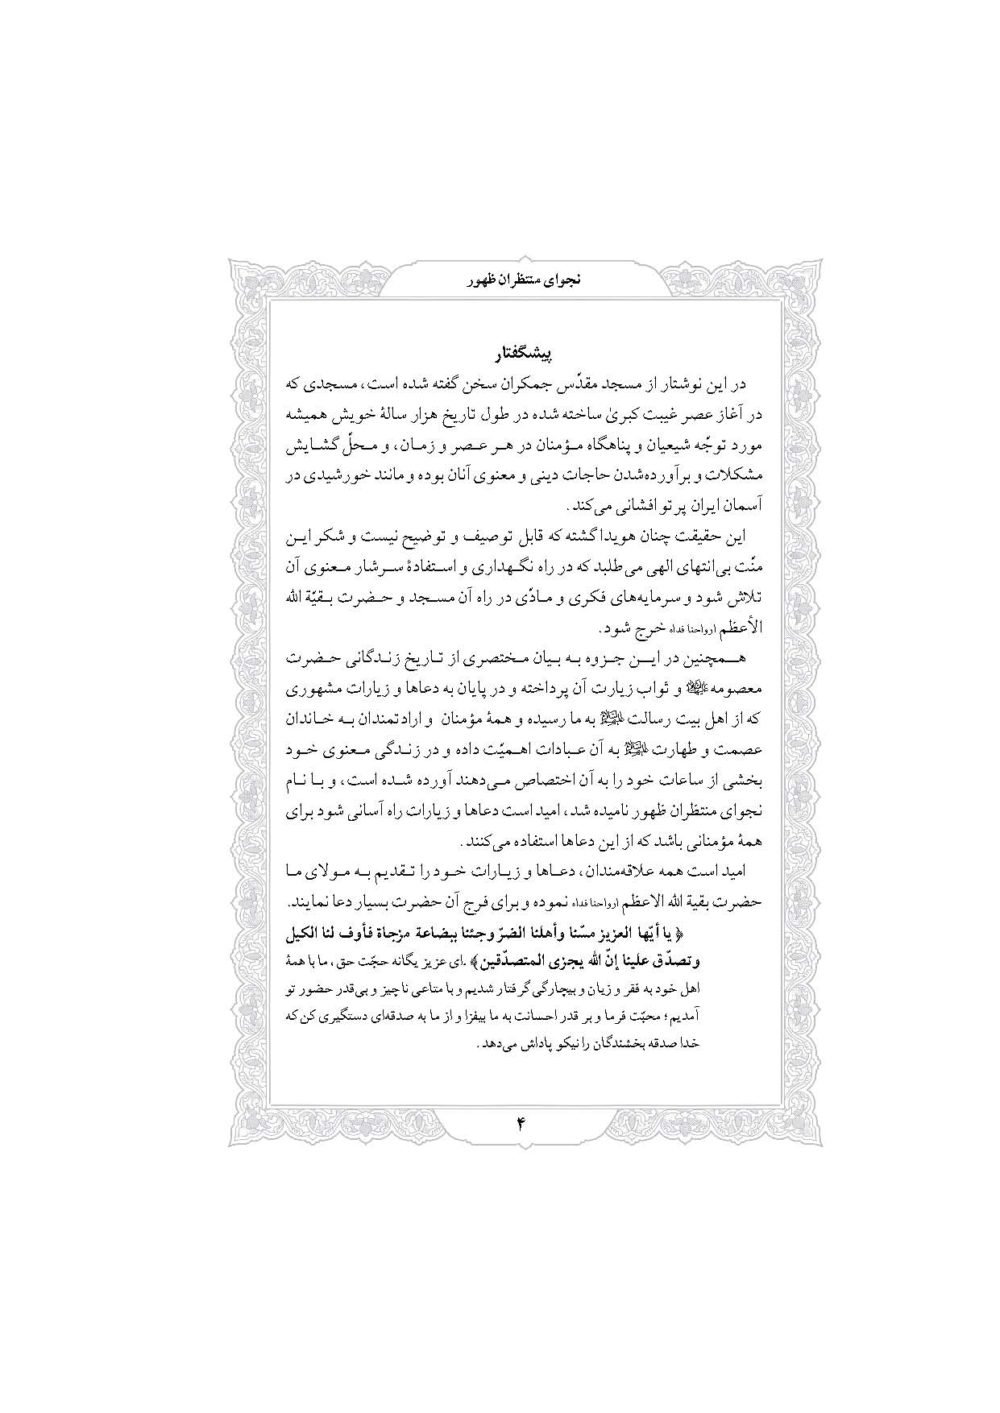 نجوای منتظران ظهور
پیشگفتار
در این نوشتار از مسجد مقدّس جمکران سخن گفته شده است، مسجدی که
در آغاز عصر غیبت کبریٰ ساخته شده در طول تاریخ هزار سالهٔ خویش همیشه
مورد توجّه شیعیان و پناهگاه مؤمنان در هر عصر و زمان، و محلّ گشایش
مشکلات و برآورده‌شدن حاجات دینی و معنوی آنان بوده و مانند خورشیدی در
آسمان ایران پرتو افشانی می‌کند.
این حقیقت چنان هویدا گشته که قابل توصیف و توضیح نیست و شکر این
منّت بی‌انتهای الهی می‌طلبد که در راه نگهداری و استفادهٔ سرشار معنوی آن
تلاش شود و سرمایه‌های فکری و مادّی در راه آن مسجد و حضرت بقیّة الله
الأعظم ارواحنا فداه خرج شود.
همچنین در این جزوه به بیان مختصری از تاریخ زندگانی حضرت
معصومه و ثواب زیارت آن پرداخته و در پایان به دعاها و زیارات مشهوری
که از اهل بیت رسالت به ما رسیده و همهٔ مؤمنان و ارادتمندان به خاندان
عصمت و طهارت به آن عبادات اهمیّت داده و در زندگی معنوی خود
بخشی از ساعات خود را به آن اختصاص می‌دهند آورده شده است، و با نام
نجوای منتظران ظهور نامیده شد، امید است دعاها و زیارات راه آسانی شود برای
همهٔ مؤمنانی باشد که از این دعاها استفاده می‌کنند.
امید است همه علاقه‌مندان، دعاها و زیارات خود را تقدیم به مولای ما
حضرت بقیة الله الاعظم ارواحنا فداه نموده و برای فرج آن حضرت بسیار دعا نمایند.
﴿یا أیّها العزیز مسّنا وأهلنا الضرّ وجئنا ببضاعة مزجاة فأوف لنا الکیل
وتصدّق علینا إنّ الله یجزی المتصدّقین﴾ .ای عزیز یگانه حجّت حق، ما با همهٔ
اهل خود به فقر و زیان و بیچارگی گرفتار شدیم و با متاعی ناچیز و بی‌قدر حضور تو
آمدیم؛ محبّت فرما و بر قدر احسانت به ما بیفزا و از ما به صدقه‌ای دستگیری کن که
خدا صدقه بخشندگان را نیکو پاداش می‌دهد.
۴